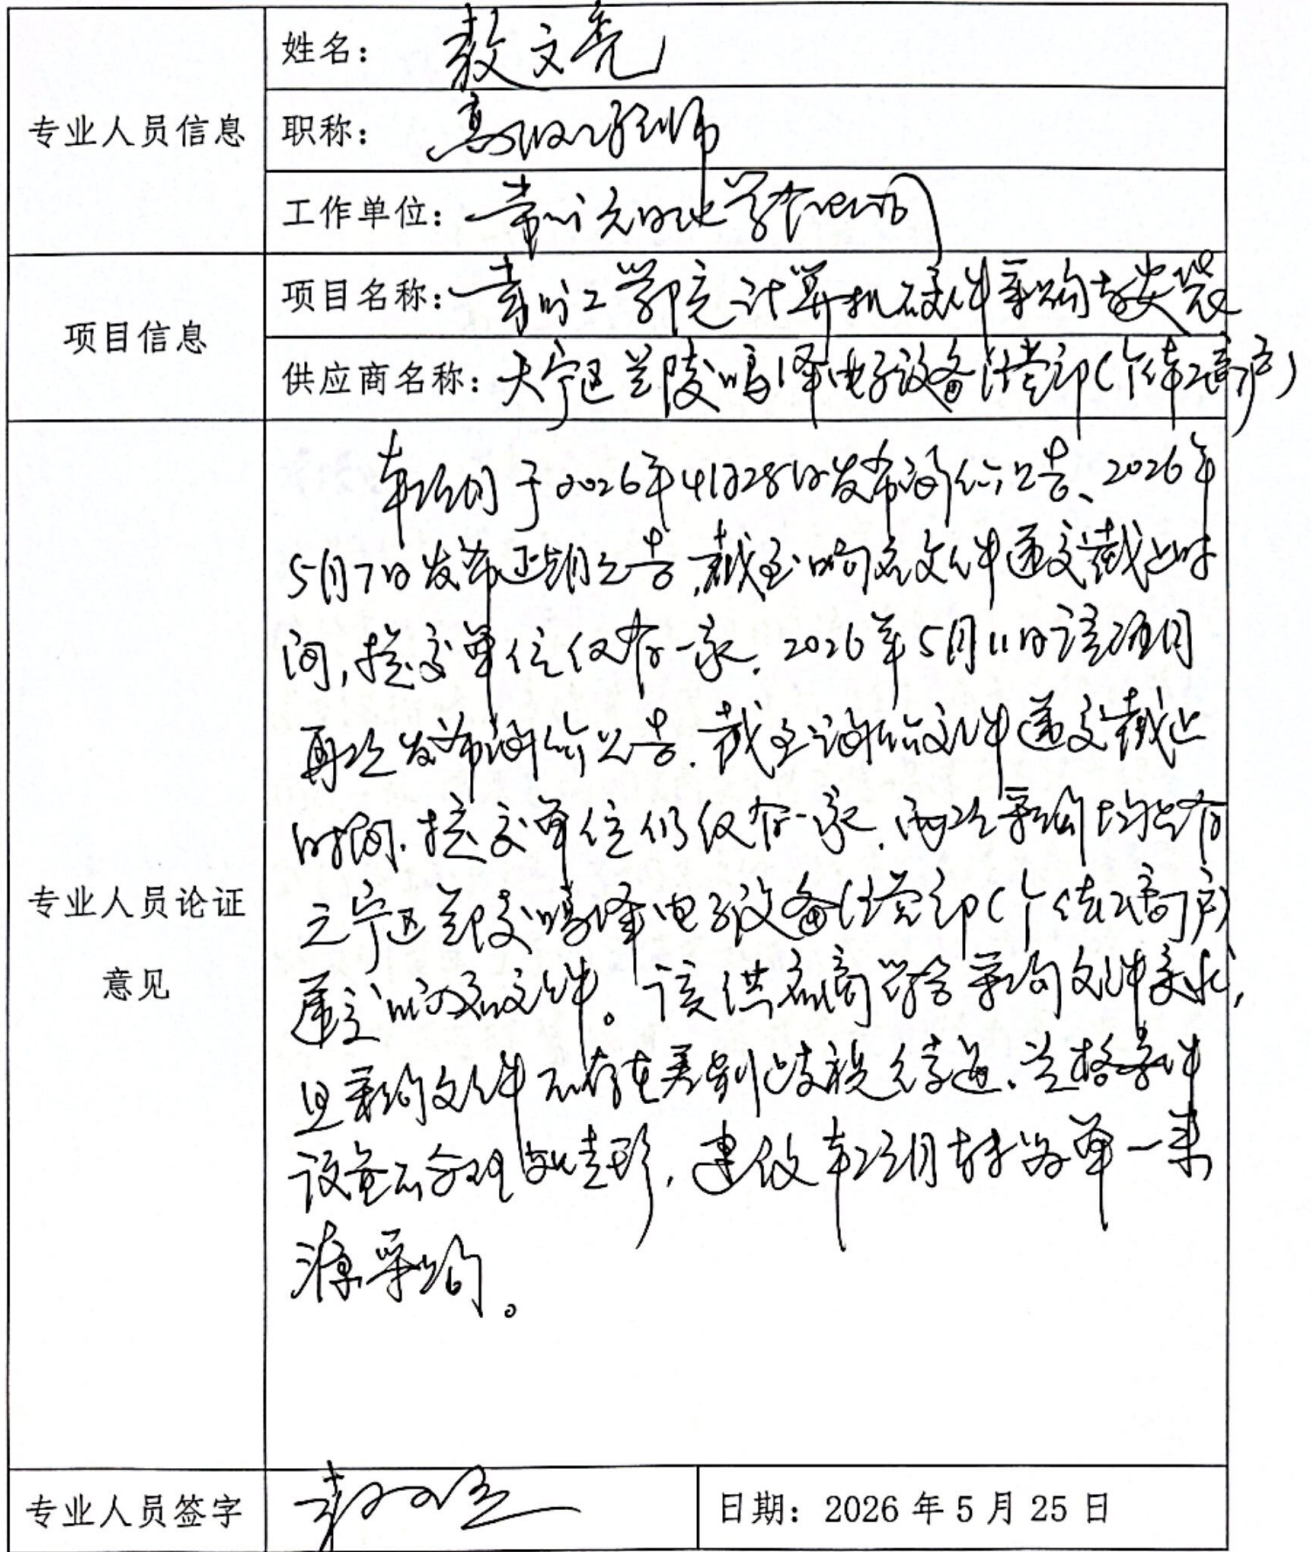 专业人员信息
姓名: 敖文亮
职称: 高级工程师
工作单位: 常州
项目信息
项目名称: 常州工学院计算机硬件采购与安装
供应商名称: 天宁区兰陵鸣泽电子设备经营部(个体工商户)
专业人员论证
意见
本项目于2026年4月28日发布询价公告、2026年
5月7日发布延期公告,截至响应文件递交截止时
间,提交单位仅有一家.2026年5月11日该项目
再次发布询价公告.截至询价文件递交截止
时间.提交单位仍仅有一家.两次采购均只有
天宁区兰陵鸣泽电子设备经营部(个体工商户)
递交响应文件。该供应商符合采购文件要求,
且采购文件不存在差别歧视待遇、资格条件
设置不合理等情形,建议本项目转为单一来
源采购。
专业人员签字
日期: 2026 年 5 月 25 日